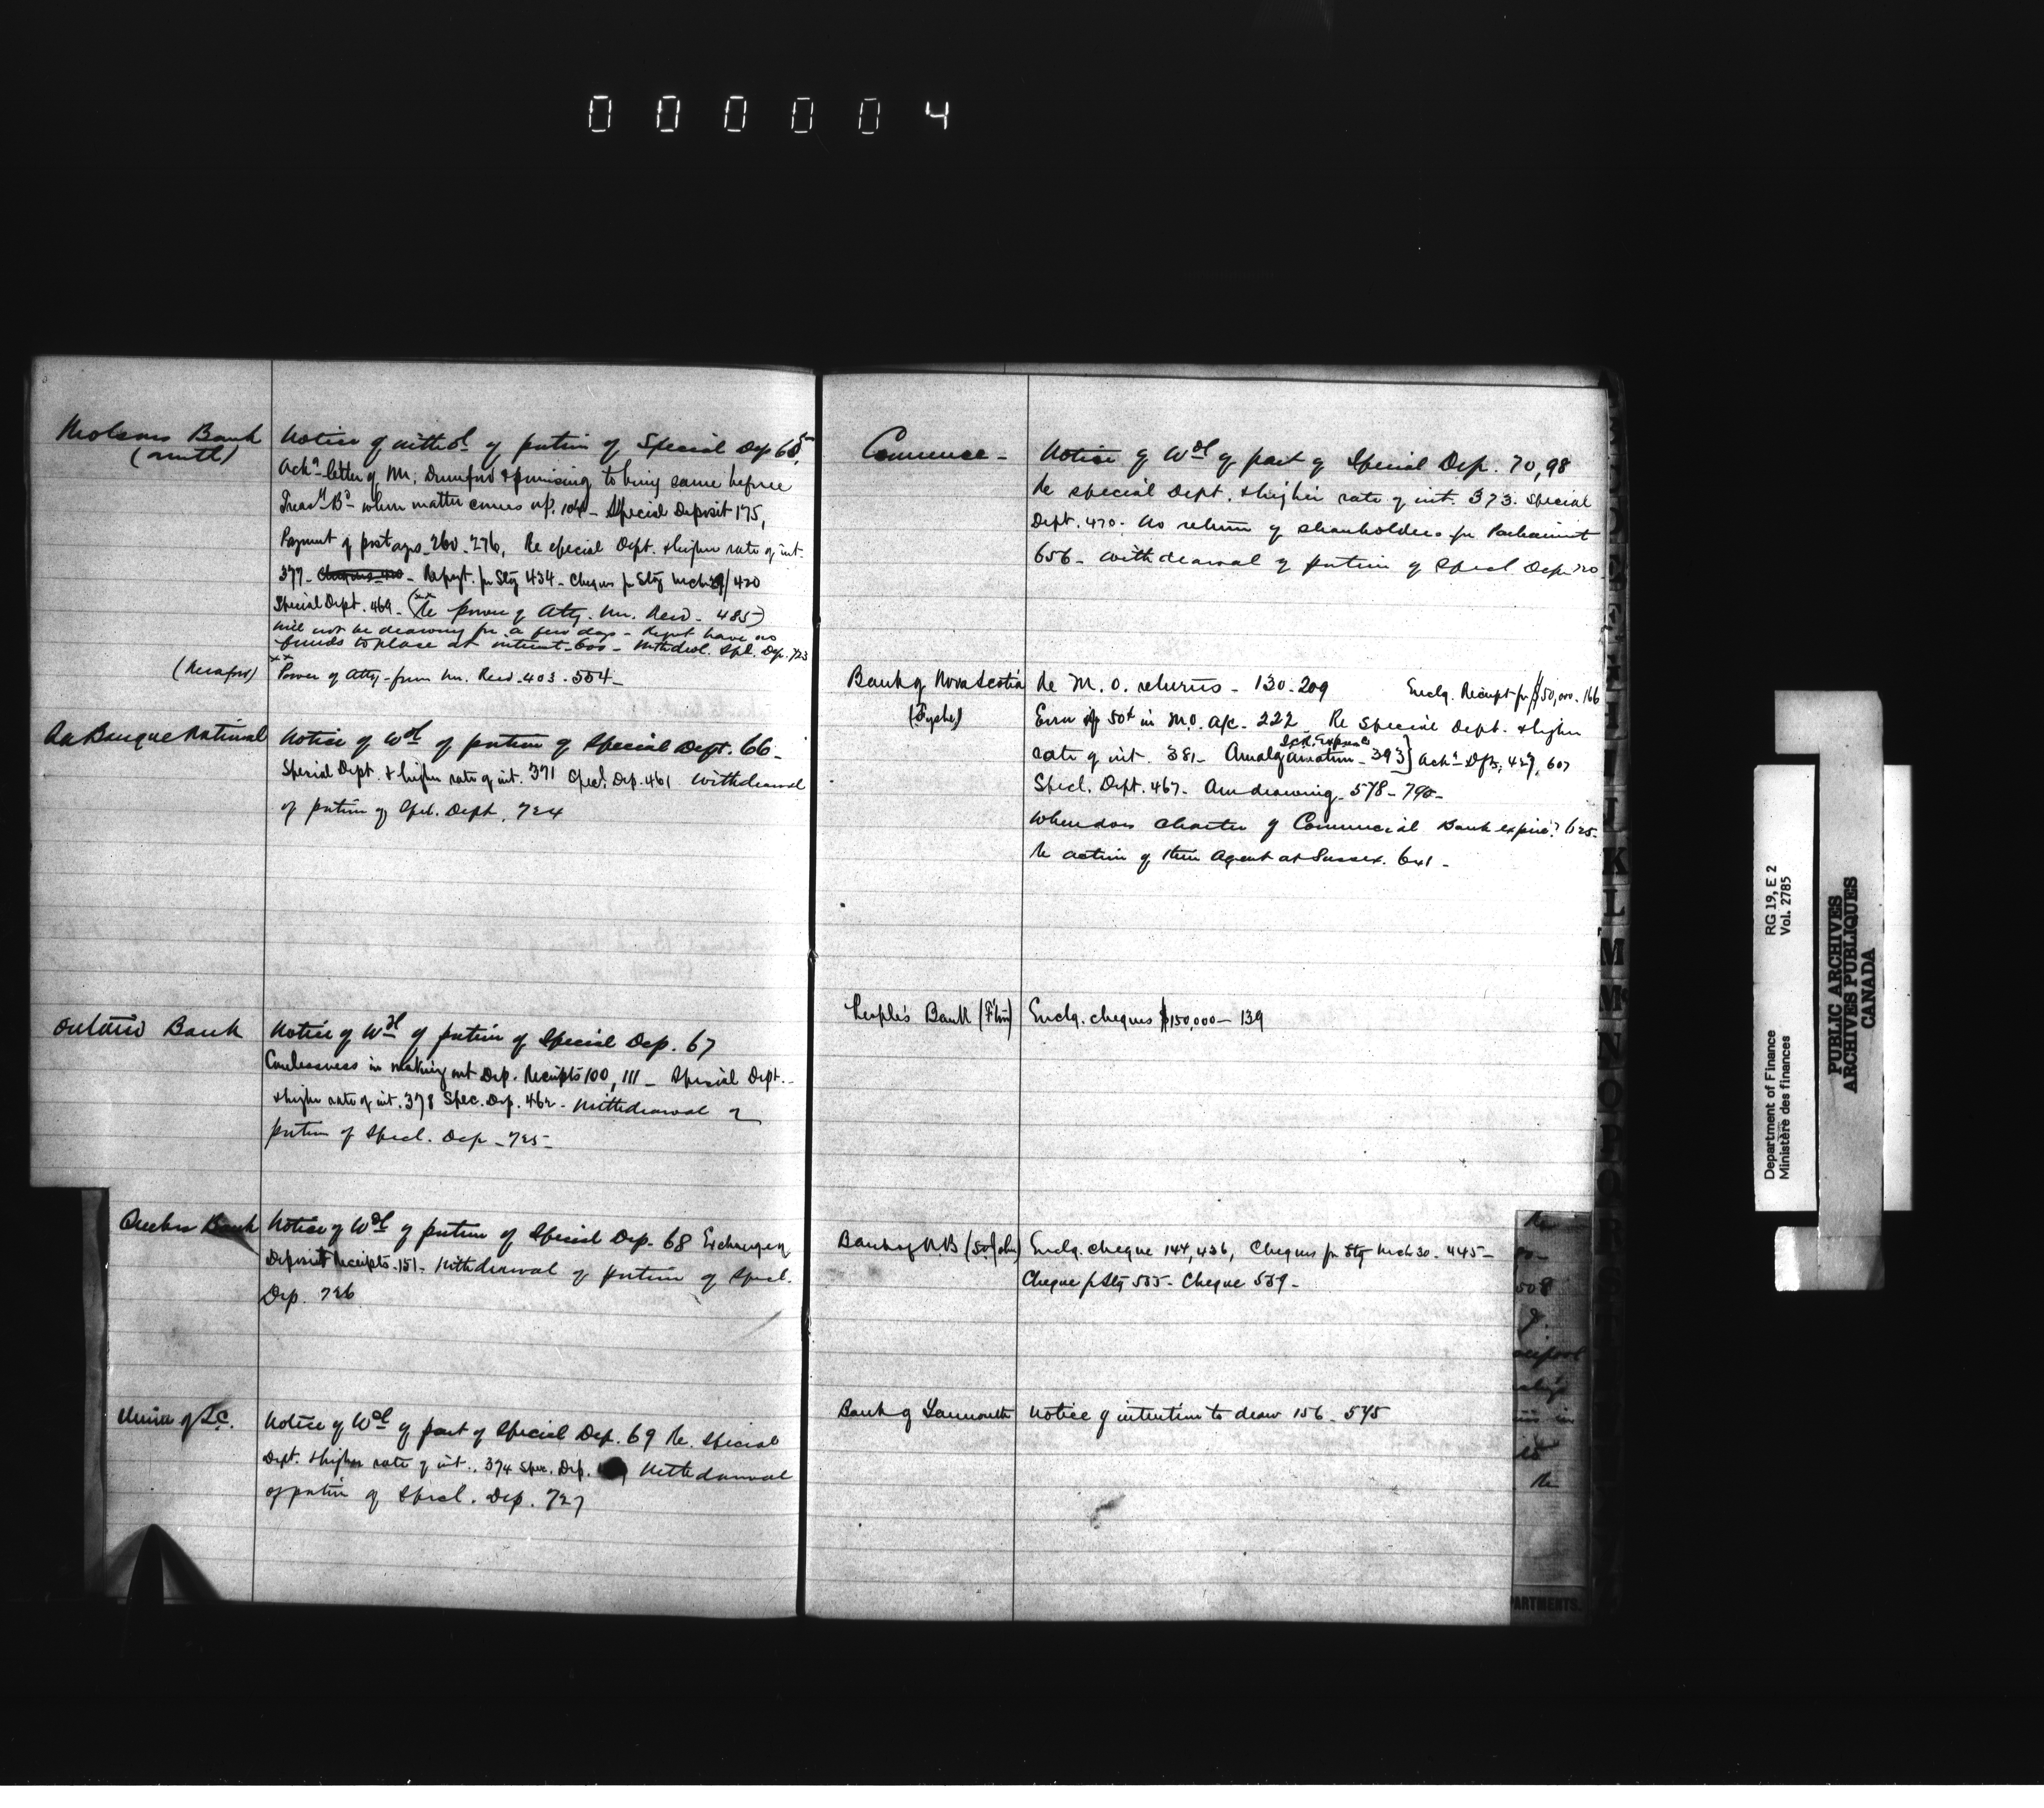 000004
Molsons Bank
Notice of withdl of portion of Special Dep 65,
Ackg letter of Mr. Dunnford & promising to bring same before
Treasy Bd when matter comes up. 104 - Special Deposit 175,
Payment of postages 260-276, Re special Dept. & higher rate of int.
377 - Cheques 420 - Rept. for Stg 434 - Cheques for Stg Mch 29/ 420
Special Dept. 464 - (xx Re power of Atty. Mr. Reid - 485)
Will not be drawing for a few days - Dept have no
funds to place at interest - 600 - Withdrl. Spl. Dep. 723
xx Power of Atty - from Mr. Reid - 403 - 554 -
La Banque National
Notice of Wdl of portion of Special Dept. 66 -
Special Dept. & higher rate of int. 371 Specl. Dep. 461 Withdrawal
of portion of Spel. Dept. 724
Ontario Bank
Notice of Wdl of portion of Special Dep. 67
Carelessness in making out Dep. Receipts 100, 111 - Special Dept. -
& higher rate of int. 378 Spec. Dep. 462 - Withdrawal of
portion of Specl. Dep - 725 -
Quebec Bank
Notice of Wdl of portion of Special Dep. 68 Exchange of
Deposit Receipts - 151 - Withdrawal of portion of Specl.
Dep. 726
Union of L.C.
Notice of Wdl of part of Special Dep. 69 Re. Special
Dept. & higher rate of int. 374 Spec. Dep. Withdrawal
of portion of Specl. Dep. 727
Commerce -
Notice of Wdl of part of Special Dep. 70, 98
Re special Dept. & higher rate of int. 373. Special
Dept. 470 - No return of shareholders for Parliament
656 - Withdrawal of portion of Specl Dep 720
Bank of Nova Scotia
(Fyshe)
Re M.O. returns - 130 - 209 Enclg. Receipt for $50,000 - 166
Error of 50¢ in M.O. a/c - 222 Re Special Dept. & higher
rate of int. 381 - Amalgamation - 393] Ackg Dfts, 427, 607
Specl. Dept. 467 - Am drawing - 578 - 790 -
When does charter of Commercial Bank expire? 625 -
Re action of their Agent at Sussex. 641 -
People's Bank
Enclg. cheques $150,000 - 139
Bank of N.B (St. John)
Enclg. cheque 144, 436, Cheques for Stg Mch 30 - 445 -
Cheque f Stg 535 - Cheque 559 -
Bank of Yarmouth
Notice of intention to draw 156 - 545
Re
508
Re
PARTMENTS.
K
L
M
Mc
N
O
P
Department of Finance RG 19, E 2
Ministère des finances Vol. 2785
PUBLIC ARCHIVES
ARCHIVES PUBLIQUES
CANADA